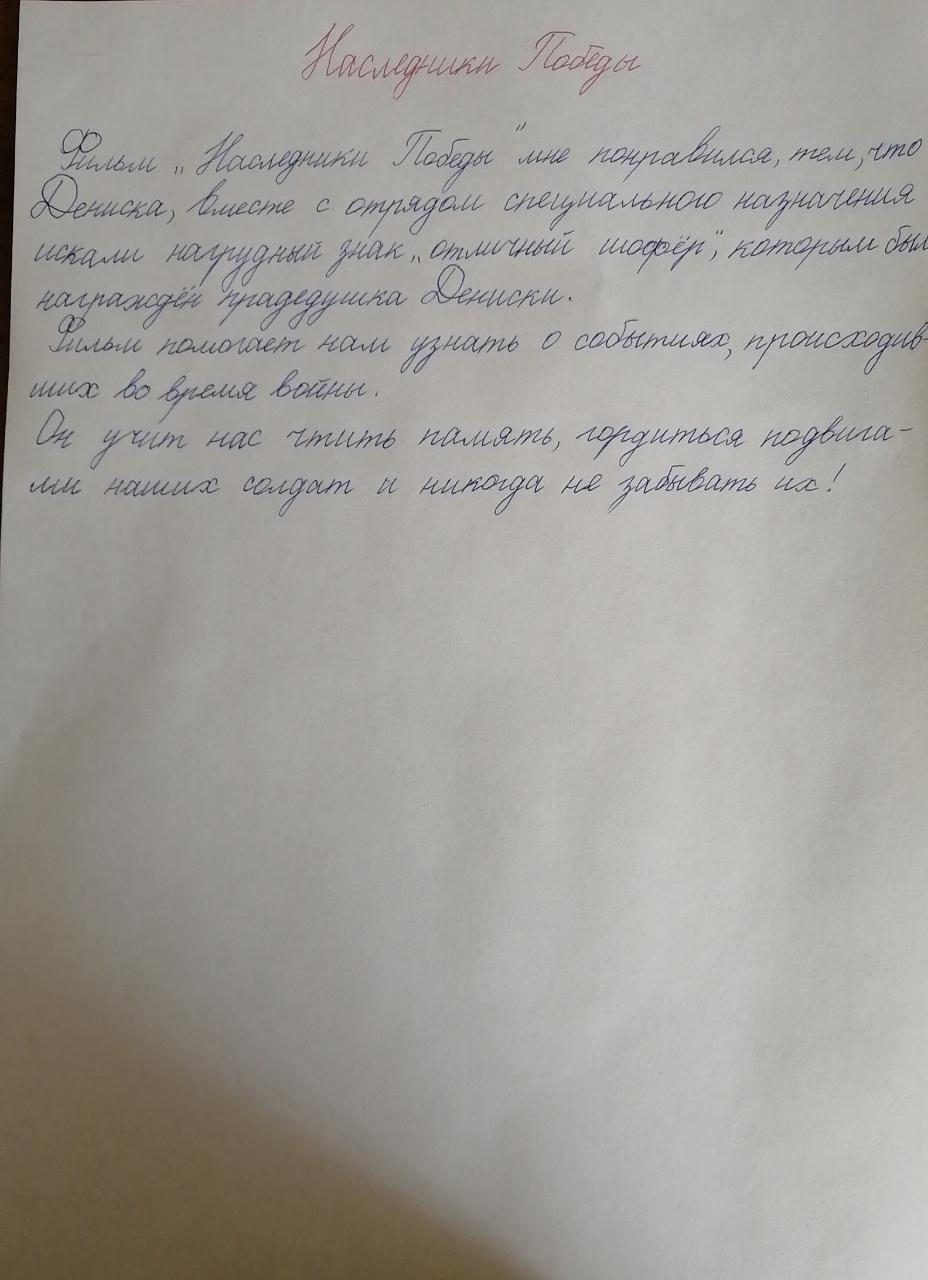 Наследники Победы
Фильм „Наследники Победы" мне понравился, тем, что
Дениска, вместе с отрядом специального назначения
искали нагрудный знак „отличный шофёр", которым был
награждён прадедушка Дениски.
Фильм помогает нам узнать о событиях, происходив-
ших во время войны.
Он учит нас чтить память, гордиться подвига-
ми наших солдат и никогда не забывать их!